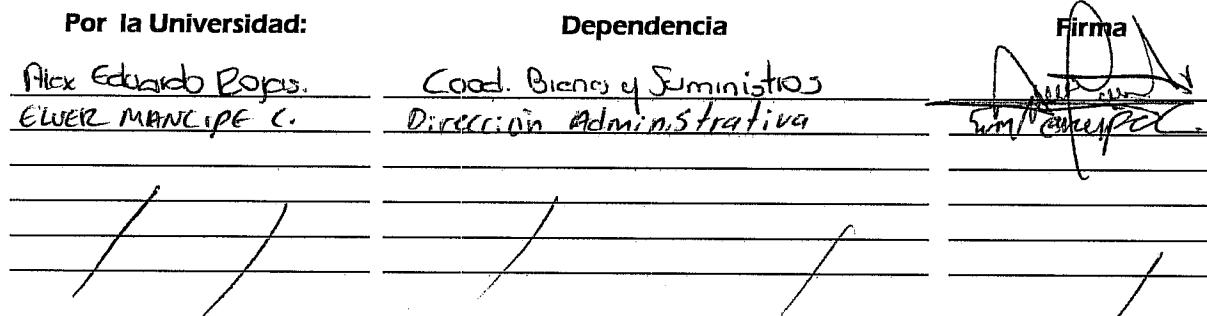 Por la Universidad: Dependencia Firma
Alex Eduardo Rojas. Cood. Bienes y Suministros
ELVER MANCIPE C. Dirección Administrativa